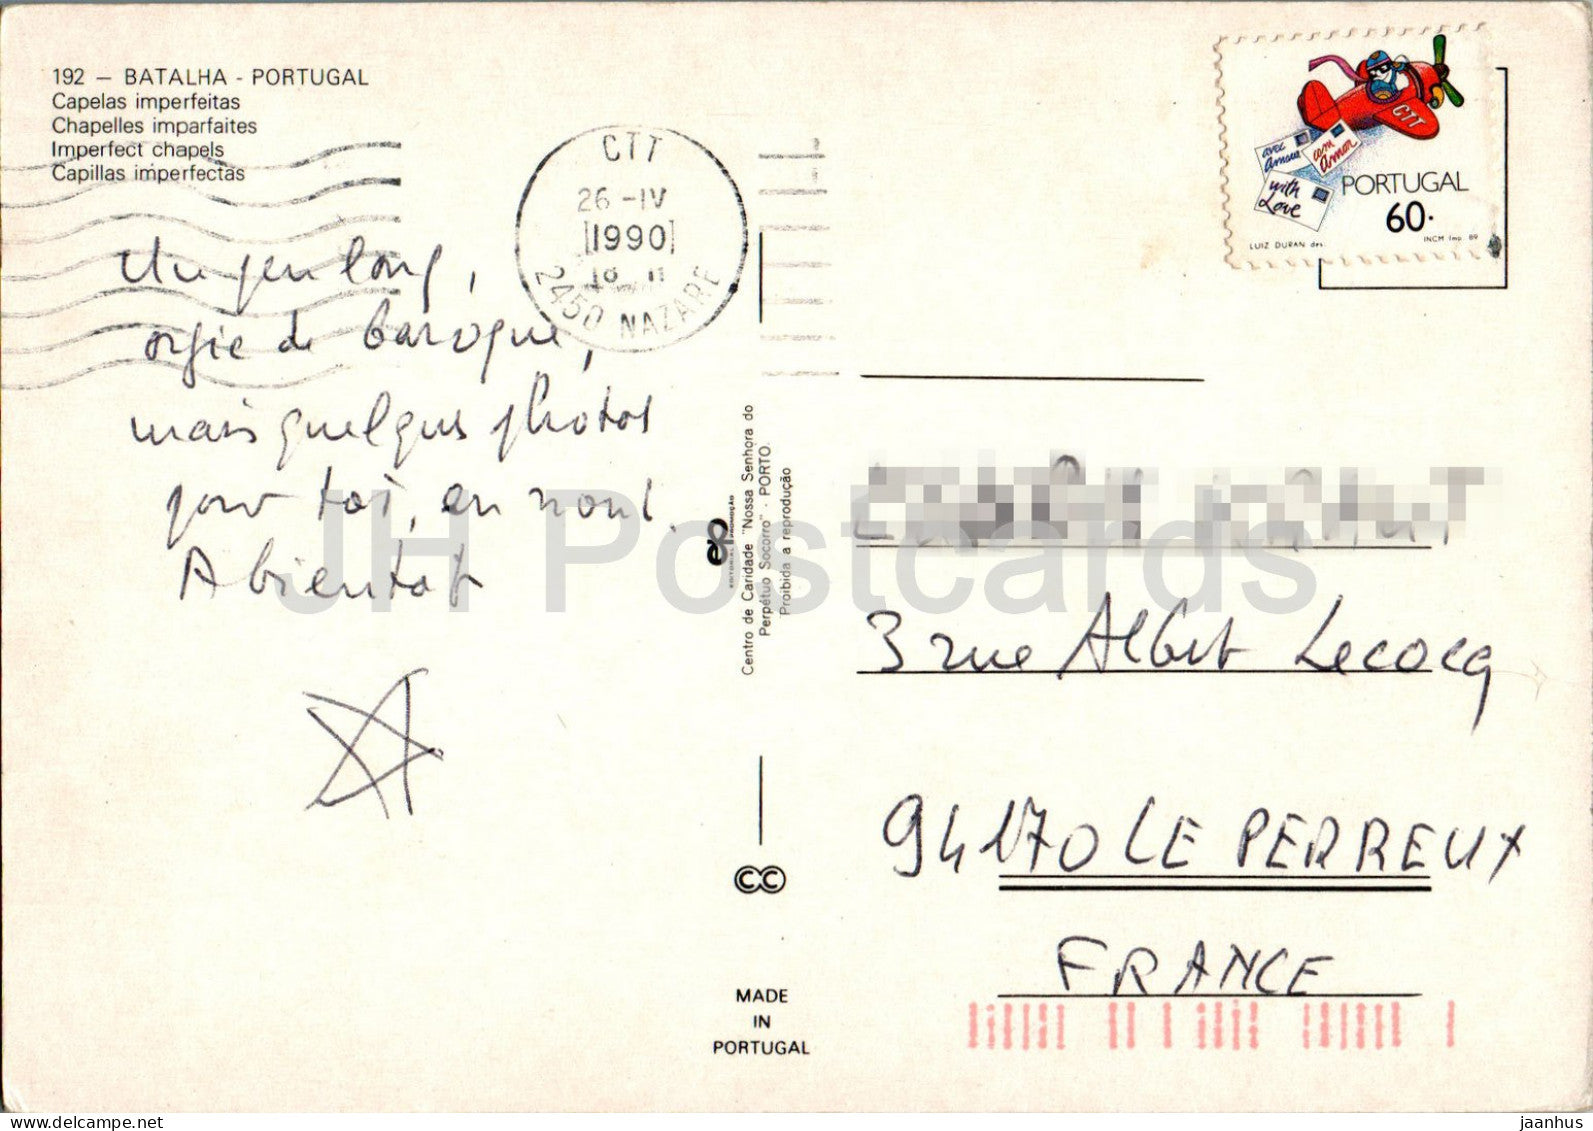 192 — BATALHA - PORTUGAL
Capelas imperfeitas
Chapelles imparfaites
Imperfect chapels
Capillas imperfectas
CTT
26 -IV
1990
18
2450 NAZARE
Un peu long,
orgie de baroque,
mais quelques photos
pour toi, en noul.
A bientot
Centro de Caridade "Nossa Senhora do
Perpétuo Socorro" - PORTO.
Proibida a reprodução
EDITORIAL PROMOÇÃO
CC
MADE
IN
PORTUGAL
CTT
avec
amour
com
amor
with
Love
PORTUGAL
60.
LUIZ DURAN des.
INCM Imp. 89
3 rue Albert Lecocq
94170 LE PERREUX
FRANCE
JH Postcards
delcampe.net
jaanhus